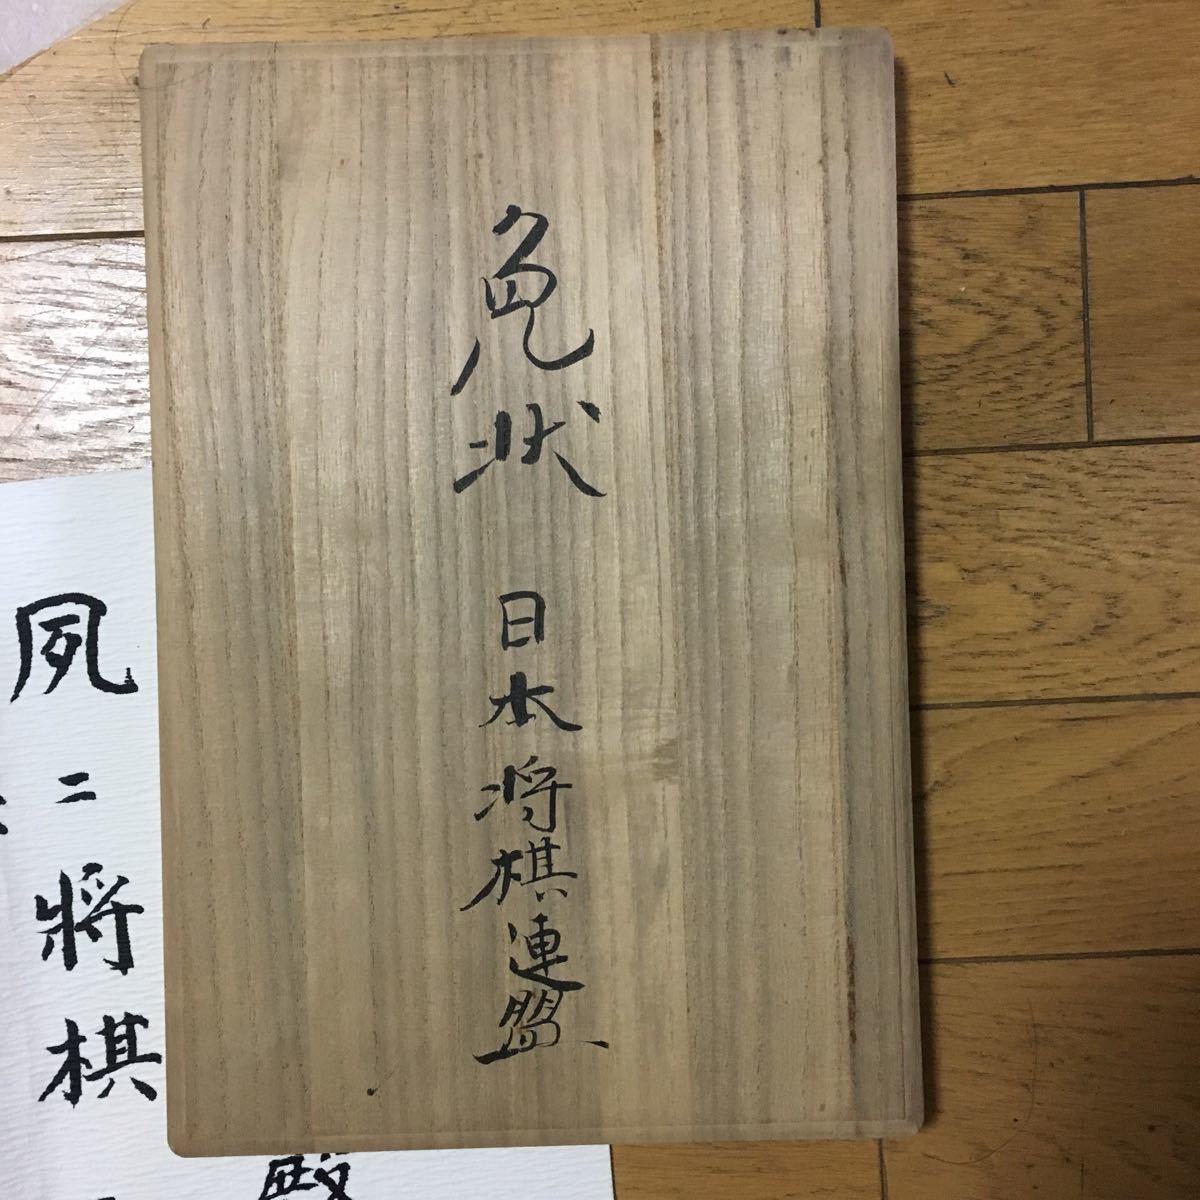 免状 日本将棋連盟
殿
夙ニ将棋